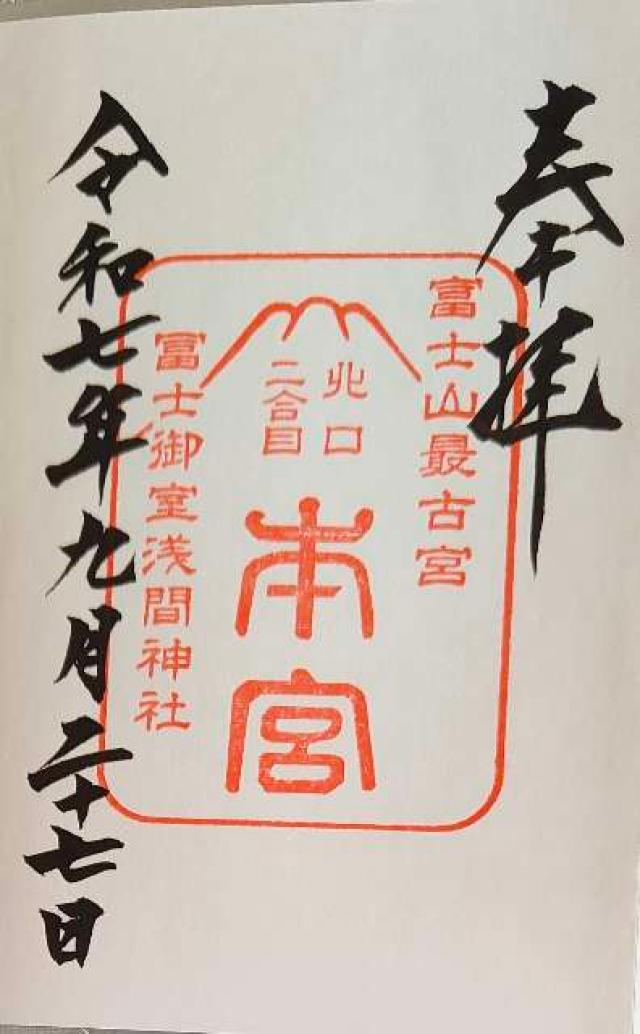 奉拝
富士山最古宮
北口
二合目
本宮
冨士御室浅間神社
令和七年九月二十七日